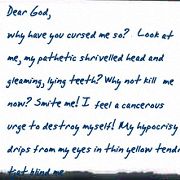 Dear God,
why have you cursed me so? Look at
me, my pathetic shrivelled head and
gleaming, lying teeth? Why not kill me
now? Smite me! I feel a cancerous
urge to destroy myself! My hypocrisy
drips from my eyes in thin yellow tendr
that blind me